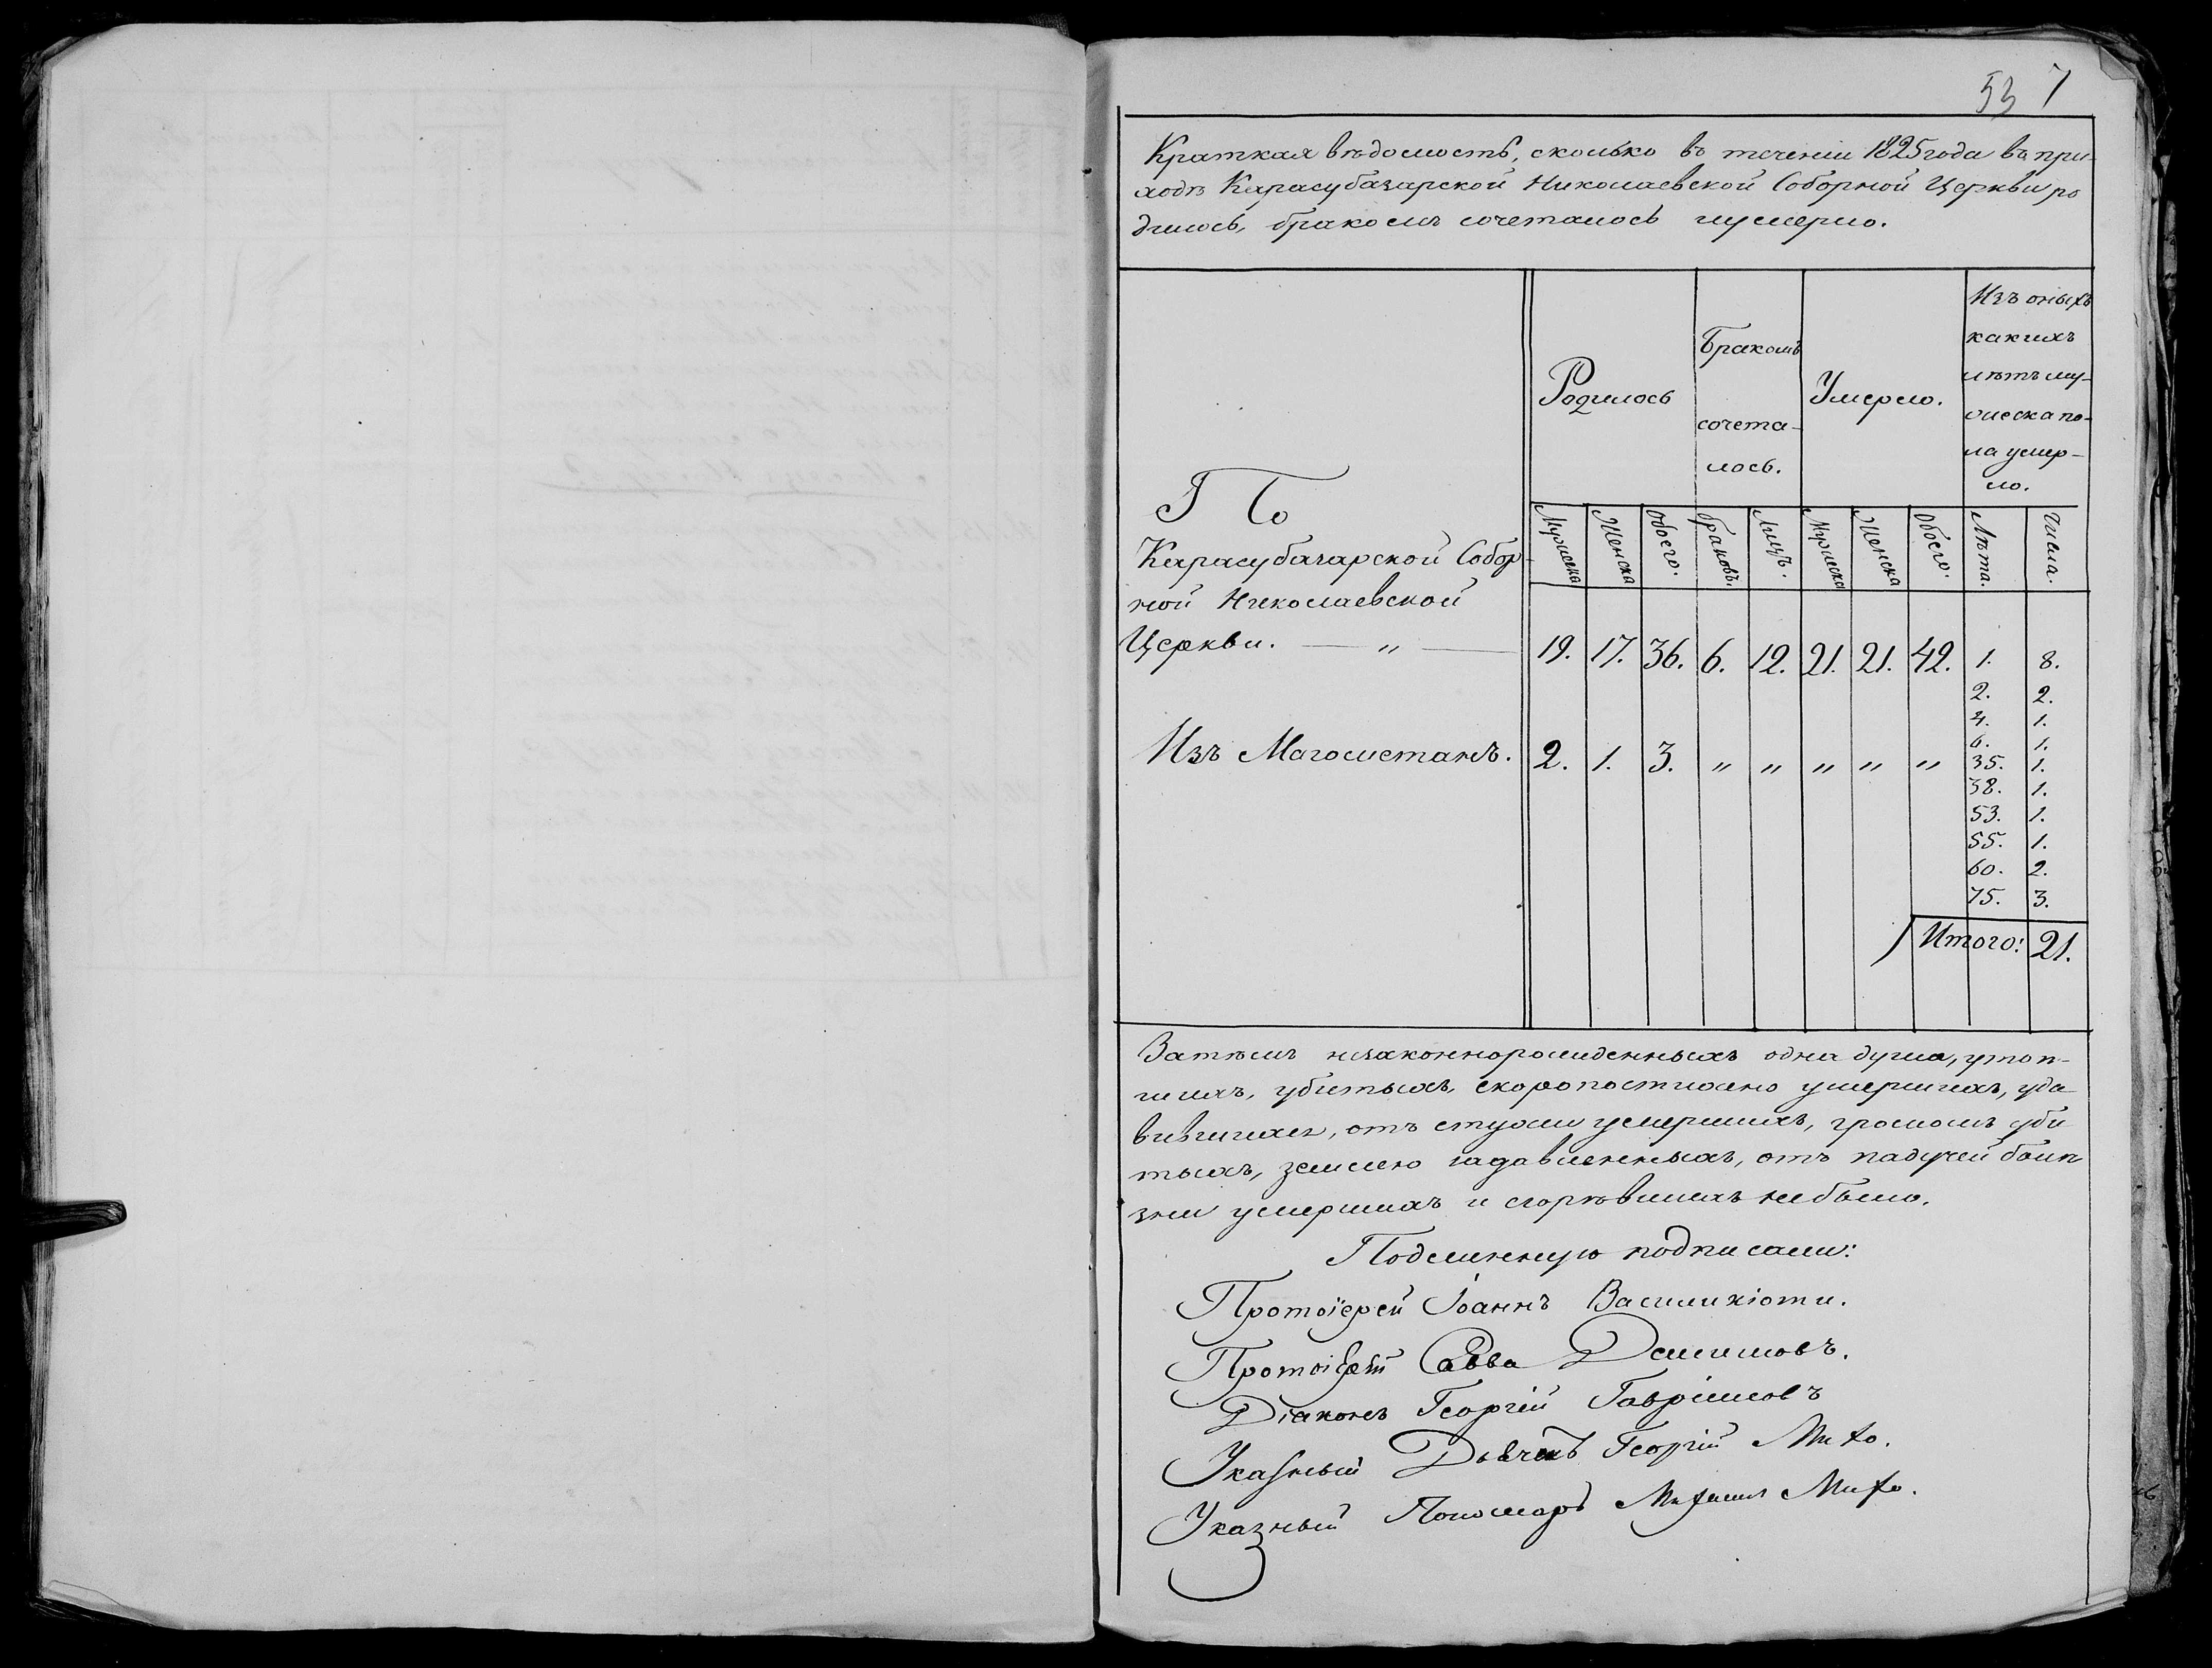 53 7
Краткая вѣдомость, сколько въ теченіи 1825 года въ при-
ходѣ Карасубазарской Николаевской Соборной Церкви ро
дилось, бракомъ сочеталось и умерло.
Родилось
Бракомъ
сочета-
лось.
Умерло.
Изъ оныхъ
какихъ
лѣтъ му-
жеска по-
ла умер-
ло.
Мужеска Женска Обоего. Браковъ. Лицъ. Мужеска Женска Обоего. Лѣта. Числа.
По
Карасубазарской Собор-
ной Николаевской
Церкви. — „ — 19. 17. 36. 6. 12. 21. 21. 42. 1. 8.
2. 2.
4. 1.
6. 1.
Изъ Магометанъ. 2. 1. 3. „ „ „ „ „ 35. 1.
38. 1.
53. 1.
55. 1.
60. 2.
75. 3.
Итого: 21.
Затѣмъ незаконнорожденныхъ одна душа, утоп-
шихъ, убитыхъ, скоропостижно умершихъ, уда
вившихся, отъ стужи умершихъ, громомъ уби
тыхъ, землею задавленныхъ, отъ падучей болѣ
зни умершихъ и сгорѣвшихъ не было.
Подлинную подписали:
Протоіерей Іоаннъ Василикіоти.
Протоіерей Савва Деминовъ.
Діаконъ Георгій Гавріиловъ
Указный Дьячекъ Георгій Михо.
Указный Пономарь Михаилъ Михо.